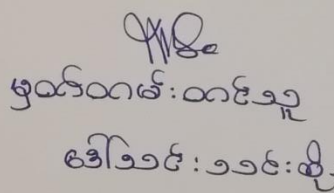 မှတ်တမ်းတင်သူ
ဒေါ်သင်းသင်းဆို